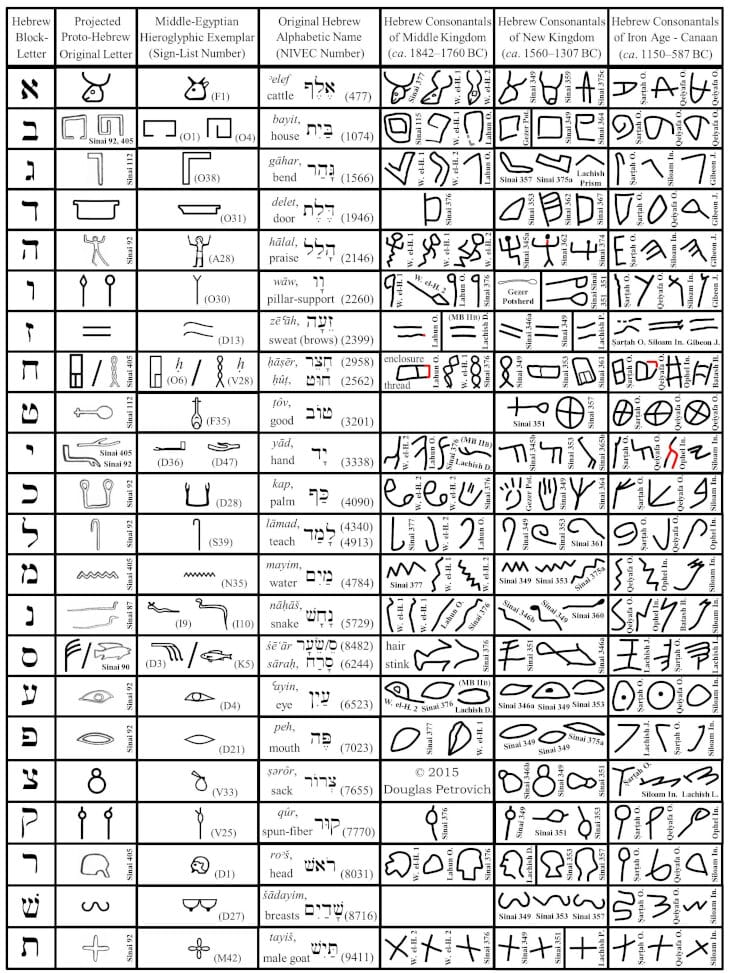 Hebrew Block-Letter | Projected Proto-Hebrew Original Letter | Middle-Egyptian Hieroglyphic Exemplar (Sign-List Number) | Original Hebrew Alphabetic Name (NIVEC Number) | Hebrew Consonantals of Middle Kingdom (ca. 1842–1760 BC) | Hebrew Consonantals of New Kingdom (ca. 1560–1307 BC) | Hebrew Consonantals of Iron Age - Canaan (ca. 1150–587 BC)
א (F1) ʾelef אֶלֶף cattle (477) Sinai 377 W. el-H. 1 W. el-H. 2 Sinai 349 Sinai 359 Sinai 375c Ṣarṭah O. Qeiyafa O. Qeiyafa O.
ב Sinai 92, 405 (O1) (O4) bayit, בַּיִת house (1074) Sinai 115 W. el-H. 1 Lahun O. Gezer Pot. Sinai 349 Sinai 364 Ṣarṭah O. Qeiyafa O. Qeiyafa O.
ג Sinai 112 (O38) gāhar, גָּהַר bend (1566) W. el-H. 1 W. el-H. 2 Lahun O. Sinai 357 Sinai 375a Lachish Prism Ṣarṭah O. Siloam In. Gibeon J.
ד (O31) delet, דֶּלֶת door (1946) Sinai 376 Sinai 353 Sinai 362 Sinai 367 Ṣarṭah O. Qeiyafa O. Gibeon J.
ה Sinai 92 (A28) hālal, הָלַל praise (2146) W. el-H. 1 W. el-H. 1 W. el-H. 2 Sinai 345a Sinai 362 Sinai 374 Ṣarṭah O. Siloam In. Gibeon J.
ו (O30) wāw, וָו pillar-support (2260) W. el-H. 1 W. el-H. 2 Lahun O. Sinai 376 Gezer Potsherd Sinai 351 Sinai 351 Ṣarṭah O. Qeiyafa O. Siloam In. Gibeon J.
ז (D13) zēʿāh, זֵעָה sweat (brows) (2399) Lahun O. (MB IIB) Lachish D. Sinai 346a Sinai 349 Lachish P. Ṣarṭah O. Siloam In. Gibeon J.
ח Sinai 405 ḥ (O6) ḥ (V28) ḥāṣēr, חָצֵר (2958) ḥûṭ, חוּט (2562) enclosure thread Lahun O. W. el-H. 2 Sinai 376 Sinai 349 Sinai 353 Sinai 361 Ṣarṭah O. Qeiyafa O. Ophel In. Baṭash B.
ט Sinai 112 (F35) ṭôv, טוֹב good (3201) Sinai 351 Sinai 357 Ṣarṭah O. Qeiyafa O. Qeiyafa O.
י Sinai 405 Sinai 92 (D36) (D47) yād, יָד hand (3338) W. el-H. 2 Lahun O. Sinai 376 (MB IIB) Lachish D. Sinai 345b Sinai 353 Sinai 365b Ṣarṭah O. Qeiyafa O. Ophel In. Siloam In.
כ Sinai 92 (D28) kap, כַּף palm (4090) W. el-H. 2 W. el-H. 2 Sinai 376 Gezer Pot. Sinai 349 Sinai 364 Ṣarṭah O. Qeiyafa O. Siloam In.
ל Sinai 92 (S39) lāmad, לָמַד teach (4340) (4913) Sinai 377 W. el-H. 2 Lahun O. Sinai 349 Sinai 353 Sinai 361 Qeiyafa O. Ṣarṭah O. Ophel In.
מ Sinai 405 (N35) mayim, מַיִם water (4784) Sinai 377 W. el-H. 1 W. el-H. 2 Sinai 349 Sinai 353 Sinai 375a Qeiyafa O. Ophel In. Siloam In.
נ Sinai 87 (I9) (I10) nāḥāš, נָחָשׁ snake (5729) W. el-H. 1 W. el-H. 1 Lahun O. Sinai 376 Sinai 346b Sinai 349 Sinai 360 Qeiyafa O. Ophel In. Baṭash B. Siloam In.
ס Sinai 90 (D3) (K5) śēʿār ס/שֵׂעָר (8482) sāraḥ, סָרַח (6244) hair stink Sinai 376 Sinai 351 Sinai 346a Lachish J. Ṣarṭah O. Lachish J.
ע Sinai 92 (D4) ʿayin, עַיִן eye (6523) W. el-H. 2 Sinai 376 (MB IIB) Lachish D. Sinai 346a Sinai 349 Sinai 353 Ṣarṭah O. Qeiyafa O. Siloam In.
פ Sinai 92 (D21) peh, פֶּה mouth (7023) Sinai 377 W. el-H. 1 Sinai 349 Sinai 349 Sinai 375a Lachish J. Ṣarṭah O. Siloam In.
צ (V33) ṣərôr, צְרוֹר sack (7655) © 2015 Douglas Petrovich Sinai 346b Sinai 349 Sinai 351 Ṣarṭah O. Siloam In. Lachish L.
ק (V25) qûr, קוּר spun-fiber (7770) Sinai 376 Sinai 349 Sinai 351 Sinai 353 Ṣarṭah O. Qeiyafa O. Ophel In.
ר Sinai 405 (D1) roʾš, רֹאשׁ head (8031) W. el-H. 1 Lahun O. Sinai 376 Lachish D. Sinai 353 Sinai 357 Ṣarṭah O. Qeiyafa O. Siloam In.
ש (D27) šādayim, שָׁדַיִם breasts (8716) Sinai 349 Sinai 353 Sinai 357 Ṣarṭah O. Qeiyafa O. Siloam In.
ת Sinai 92 (M42) tayiš, תַּיִשׁ male goat (9411) W. el-H. 2 W. el-H. 2 Sinai 376 Sinai 349 Sinai 351 Lachish P. Ṣarṭah O. Qeiyafa O. Siloam In.